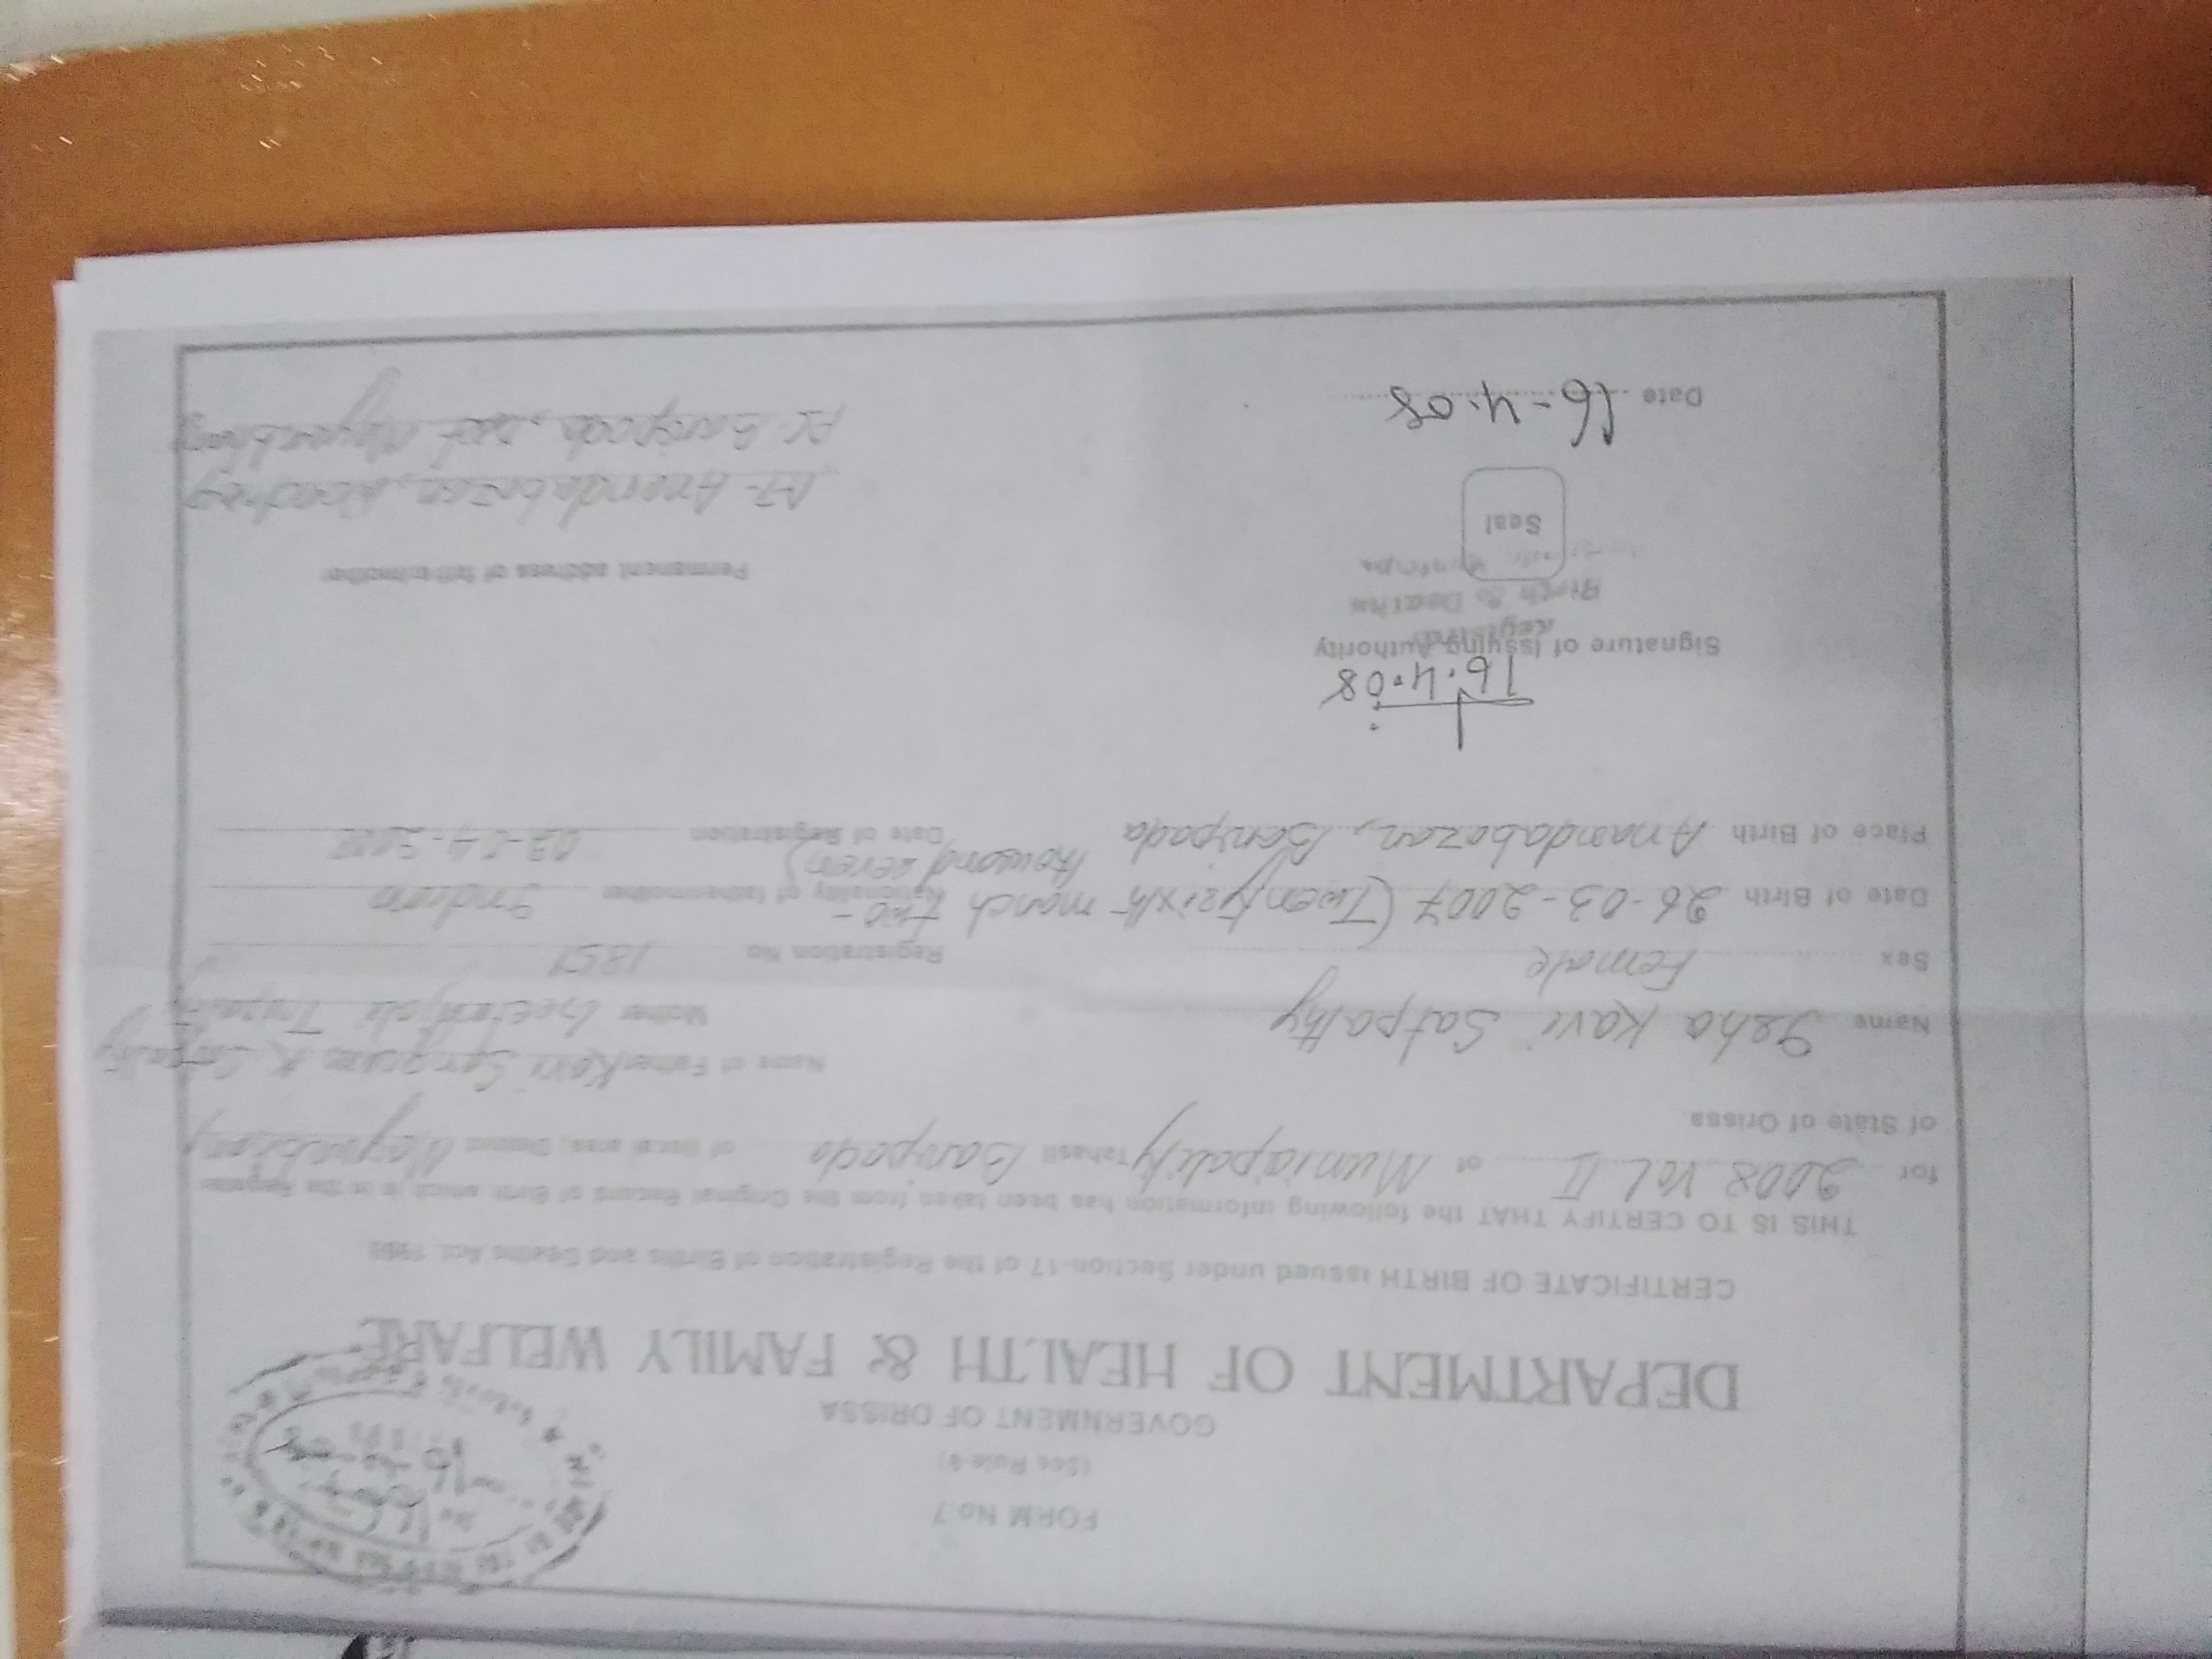 FORM No.7
(See Rule-8)
GOVERNMENT OF ORISSA
DEPARTMENT OF HEALTH & FAMILY WELFARE
CERTIFICATE OF BIRTH issued under Section-17 of the Registration of Births and Deaths Act. 1969
THIS IS TO CERTIFY THAT the following information has been taken from the Original Record of Birth which is in the Register
for 2008 Vol II of Municipality Tahasil Baripada of Local area, District
of State of Orissa
Name Isha Kavi Satpathy
Name of Father Kavi K. Satpathy
Mother Geetanjali Tripathy
Sex Female
Registration No. 1851
Date of Birth 26-03-2007 (Twentysixth march two-
thousand seven)
Nationality of father/mother Indian
Place of Birth Anandabazar, Baripada
Date of Registration
16.4.08
Signature of Issuing Authority
Registrar
Birth & Deaths
Seal
Date 16-4-08
Permanent address of father/mother
AT- Anandabazar,
PS. Baripada, Dist Mayurbhanj